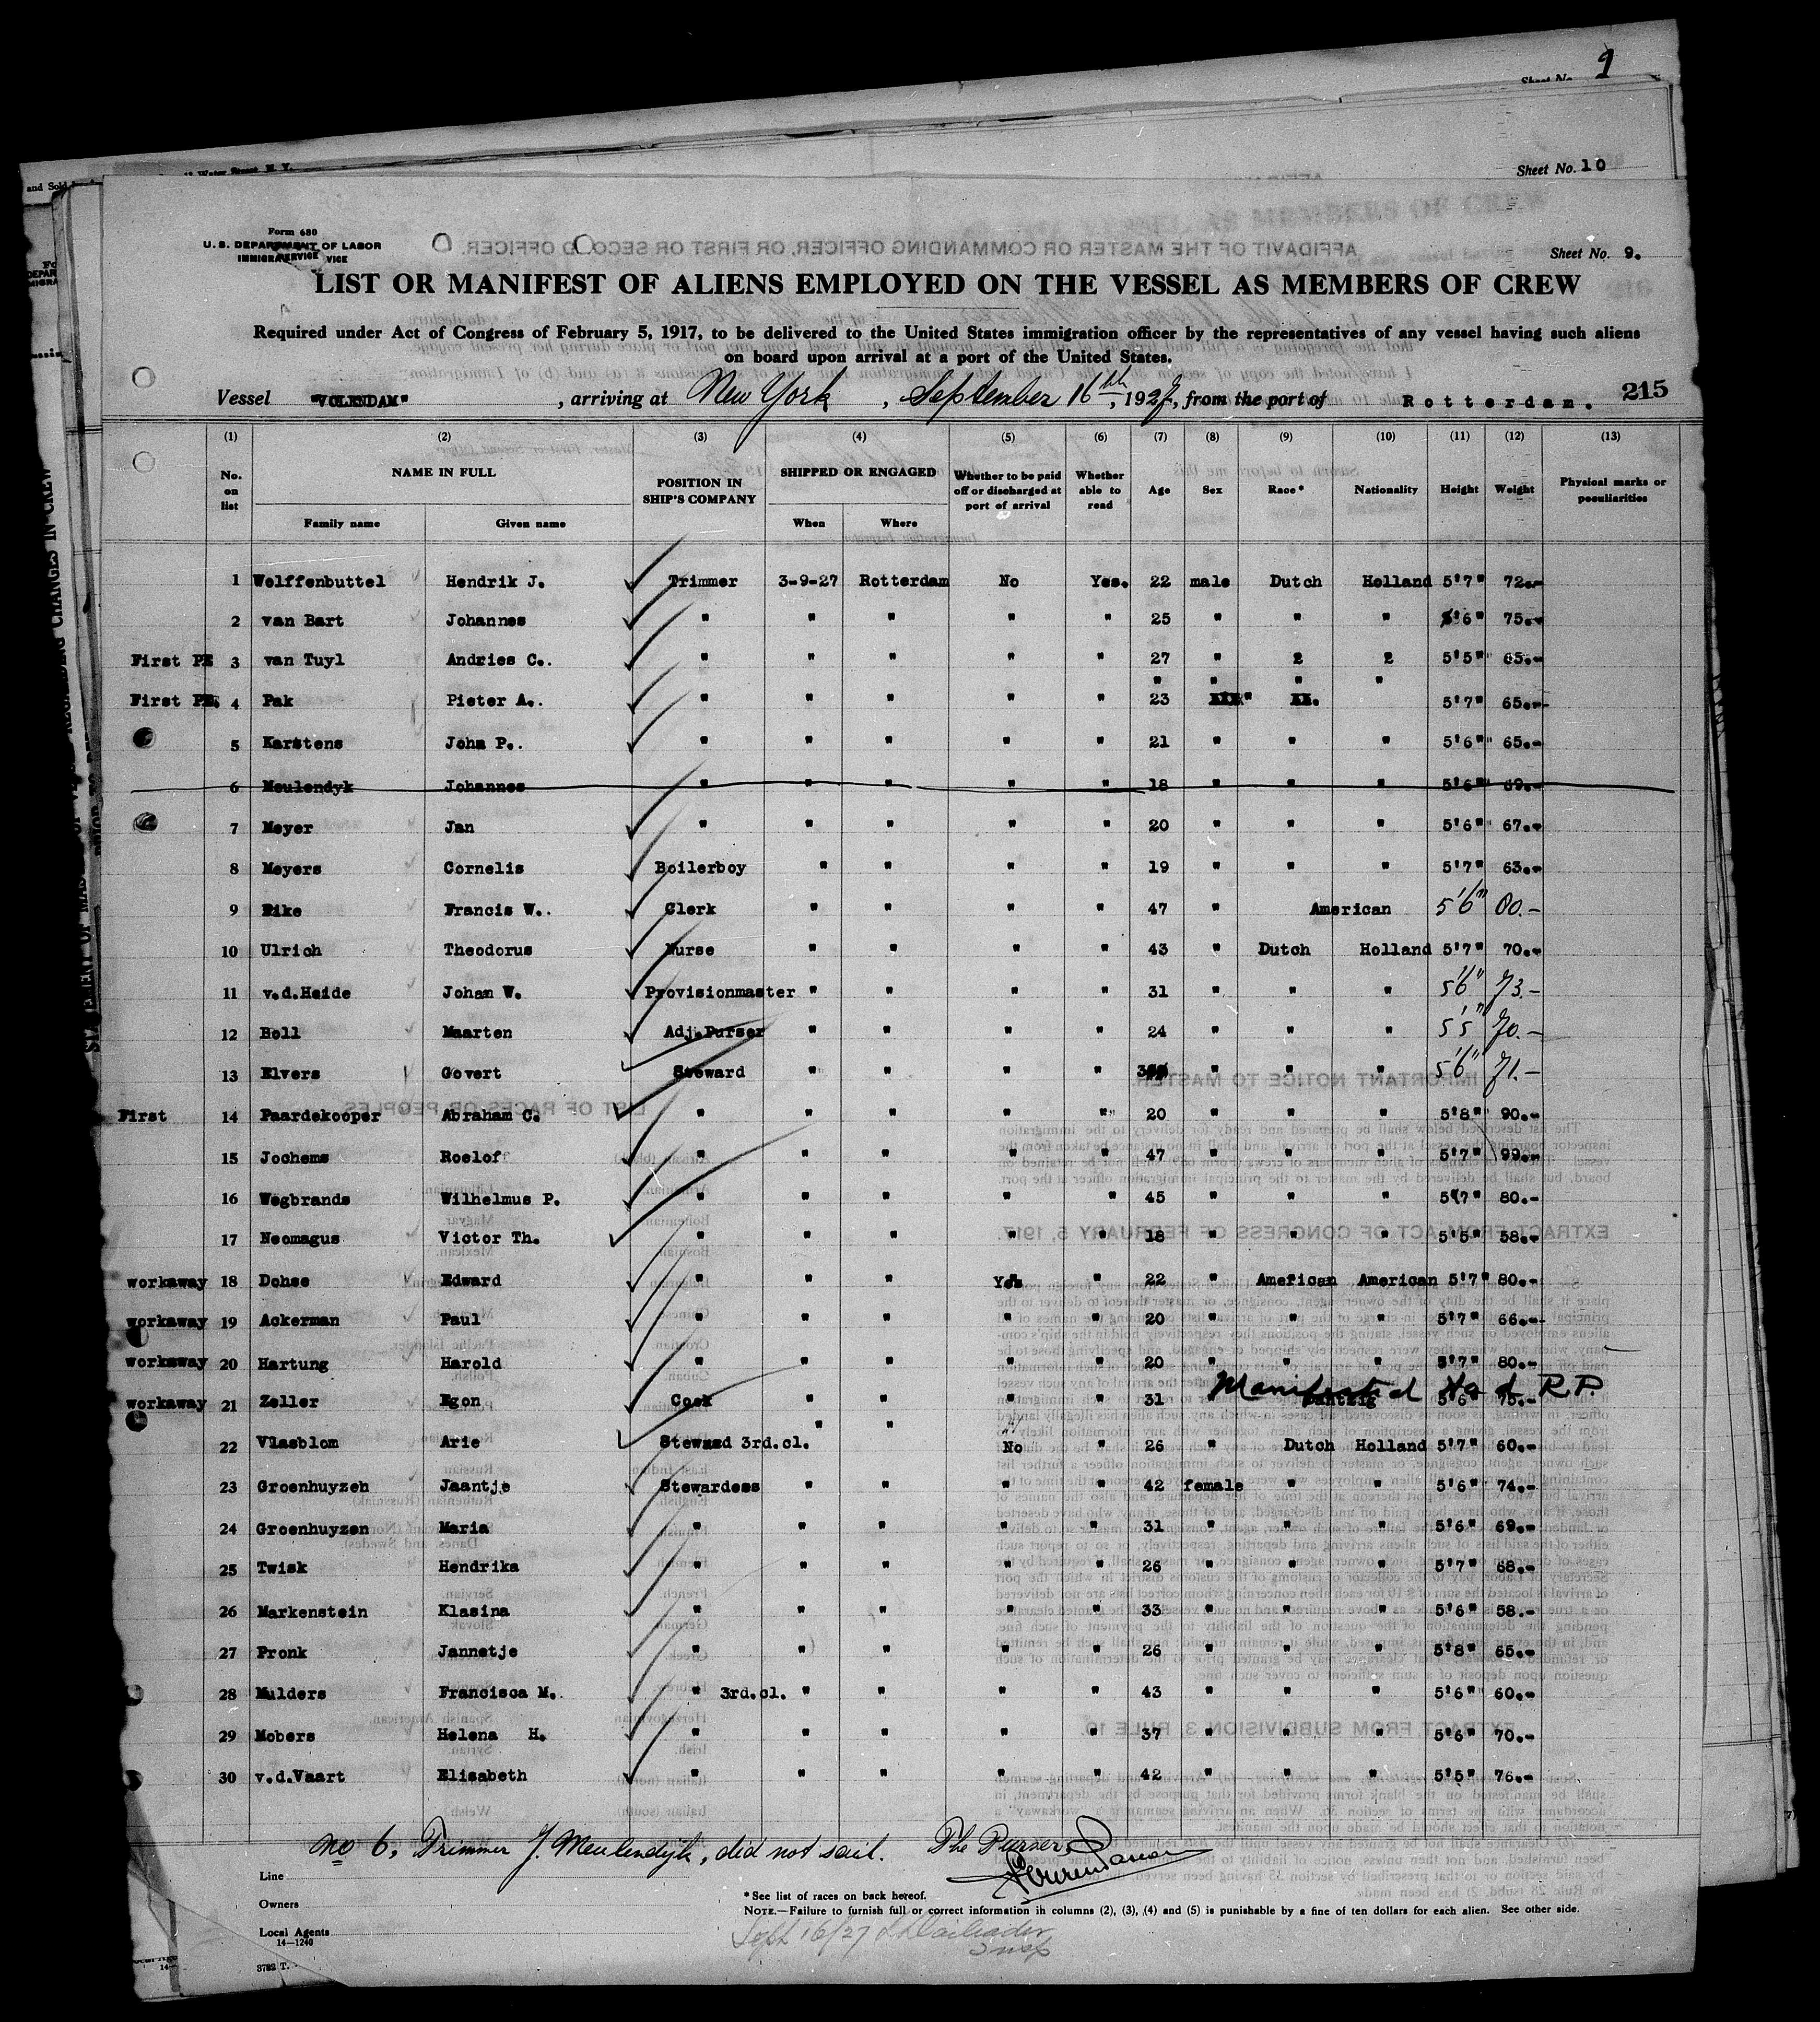 Sheet No. 9
Sheet No. 10
Form 680
U. S. DEPARTMENT OF LABOR
Sheet No. 9.
LIST OR MANIFEST OF ALIENS EMPLOYED ON THE VESSEL AS MEMBERS OF CREW
Required under Act of Congress of February 5, 1917, to be delivered to the United States immigration officer by the representatives of any vessel having such aliens
on board upon arrival at a port of the United States.
Vessel "VOLENDAM", arriving at New York, September 16th, 1927, from the port of Rotterdam. 215
(1) (2) (3) (4) (5) (6) (7) (8) (9) (10) (11) (12) (13)
No. on list NAME IN FULL POSITION IN SHIP'S COMPANY SHIPPED OR ENGAGED Whether to be paid off or discharged at port of arrival Whether able to read Age Sex Race* Nationality Height Weight Physical marks or peculiarities
Family name Given name When Where
1 Wolffenbuttel Hendrik J. Trimmer 3-9-27 Rotterdam No Yes. 22 male Dutch Holland 5'7" 72.-
2 van Bart Johannes " " " " " 25 " " " 5'6" 75.-
First 3 van Tuyl Andries C.. " " " " " 27 " 2 2 5'5" 65.-
First 4 Pak Pieter A.. " " " " " 23 " " " 5'7" 65.-
5 Karstens John P.. " " " " " 21 " " " 5'6" 65.-
6 Meulendyk Johannes " " " " " 18 " " " 5'6" 69.-
7 Meyer Jan " " " " " 20 " " " 5'6" 67.-
8 Meyers Cornelis Boilerboy " " " " 19 " " " 5'7" 63.-
9 Francis W.. Clerk " " " " 47 " American 5'6" 80.-
10 Ulrich Theodorus Nurse " " " " 43 " Dutch Holland 5'7" 70.-
11 v.d.Heide Johan W. Provisionmaster " " " " 31 " " " 5'6" 73.-
12 Boll Maarten Adj.Purser " " " " 24 " " " 5'5" 70.-
13 Elvers Govert Steward " " " " " " " 5'6" 71.-
First 14 Paardekooper Abraham C. " " " " " 20 " " " 5'8" 90.-
15 Jochems Roelof " " " " " 47 " " " 5'7" 99.-
16 Wegbrands Wilhelmus P. " " " " " 45 " " " 5'7" 80.-
17 Neomagus Victor Th. " " " " " 18 " " " 5'5" 58.-
workaway 18 Dohse Edward " " " Yes " 22 " American American 5'7" 80.-
workaway 19 Ackerman Paul " " " " " 20 " " " 5'7" 66.-
workaway 20 Hartung Harold " " " " " 20 " " " 5'7" 80.-
workaway 21 Zeller Egon Cook " " " " 31 Dantzig 5'6" 75.-
Manifested as R.P.
22 Vlasblom Arie Steward 3rd.cl. " " No " 26 " Dutch Holland 5'7" 60.-
23 Groenhuyzen Jaantje Stewardess " " " " 42 female " " 5'6" 74.-
24 Groenhuyzen Maria " " " " " 31 " " " 5'6" 69.-
25 Twisk Hendrika " " " " " 26 " " " 5'7" 68.-
26 Markenstein Klasina " " " " " 33 " " " 5'6" 58.-
27 Pronk Jannetje " " " " " 26 " " " 5'8" 65.-
28 Mulders Francisca M. " 3rd.cl. " " " " 43 " " " 5'6" 60.-
29 Mobers Helena H. " " " " " 37 " " " 5'6" 70.-
30 v.d.Vaart Elisabeth " " " " " 42 " " " 5'5" 76.-
No 6. Trimmer J. Meulendijk, did not sail. The Purser,
Line
Owners
Local Agents
14—1240
3782 T.
*See list of races on back hereof.
NOTE.—Failure to furnish full or correct information in columns (2), (3), (4) and (5) is punishable by a fine of ten dollars for each alien. See other side.
Sept 16/27